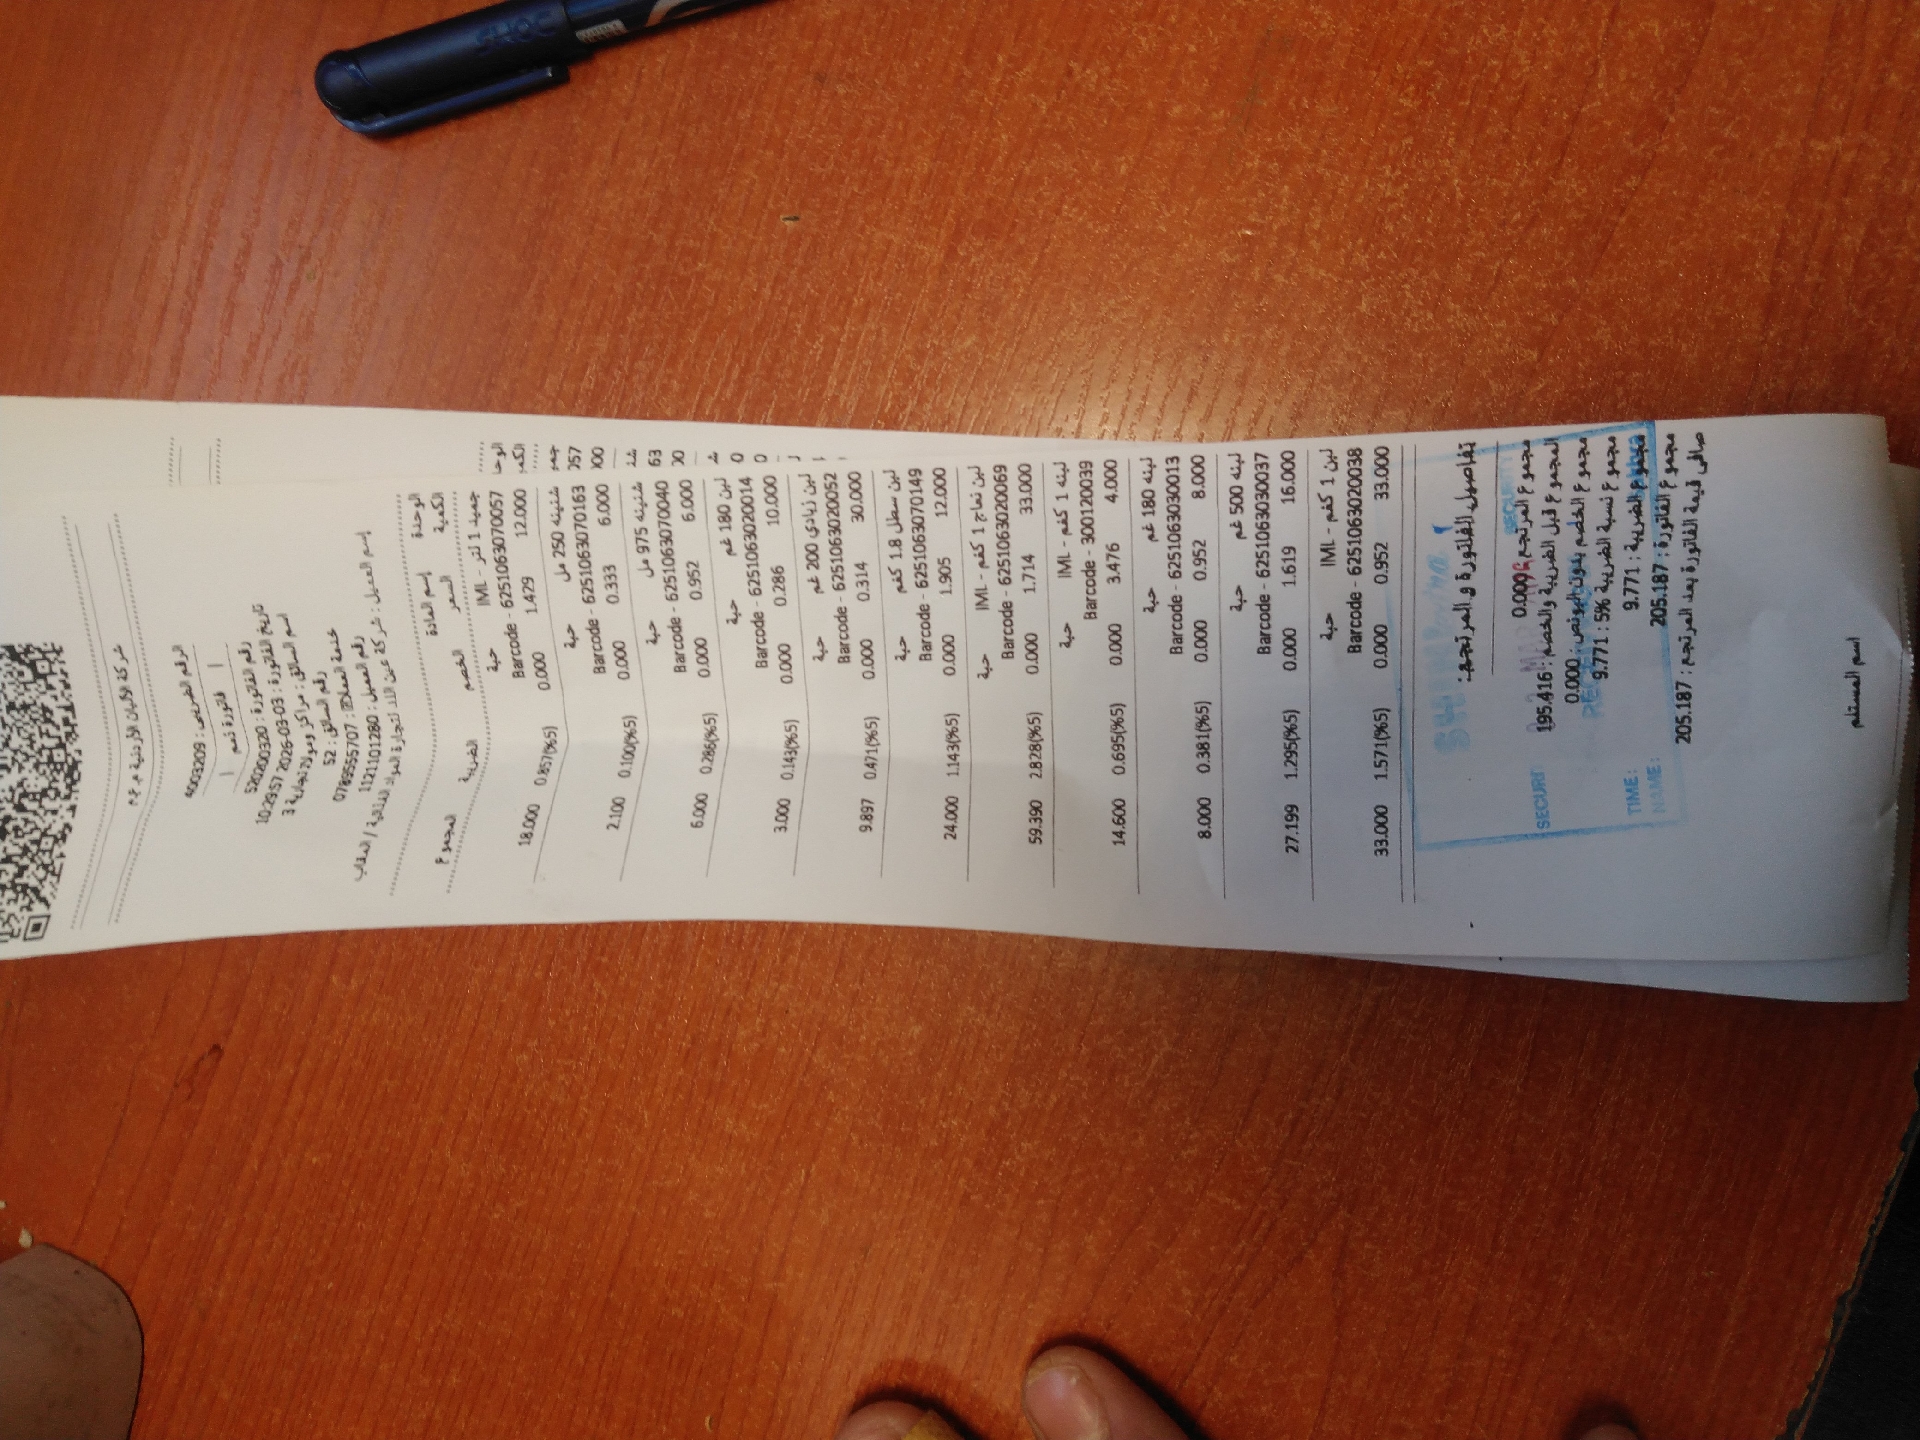 شركة الألبان الأردنية م.ع.م
الرقم الضريبي : 4003209
فاتورة ذمم
رقم الفاتورة : 520300320
تاريخ الفاتورة : 2026-03-03 10:29:57
اسم السائق : مراكز ومولات تجارية 3
رقم السائق : 52
خدمة العملاء : 0789555707
رقم العميل : 1121101280
إسم العميل : شركة عين اللد لتجارة المواد الغذائية /
الوحدة إسم المادة
الكمية السعر الخصم الضريبة المجموع
جميد 1 لتر - IML حبة
Barcode - 6251063070057
12.000 1.429 0.000 0.857(%5) 18.000
شنينه 250 مل حبة
Barcode - 6251063070163
6.000 0.333 0.000 0.100(%5) 2.100
شنينه 975 مل حبة
Barcode - 6251063070040
6.000 0.952 0.000 0.286(%5) 6.000
لبن 180 غم حبة
Barcode - 6251063020014
10.000 0.286 0.000 0.143(%5) 3.000
لبن زبادي 200 غم حبة
Barcode - 6251063020052
30.000 0.314 0.000 0.471(%5) 9.897
لبن سطل 1.8 كغم حبة
Barcode - 6251063070149
12.000 1.905 0.000 1.143(%5) 24.000
لبن نعاج 1 كغم - IML حبة
Barcode - 6251063020069
33.000 1.714 0.000 2.828(%5) 59.390
لبنه 1 كغم - IML حبة
Barcode - 300120039
4.000 3.476 0.000 0.695(%5) 14.600
لبنه 180 غم حبة
Barcode - 6251063030013
8.000 0.952 0.000 0.381(%5) 8.000
لبنه 500 غم حبة
Barcode - 6251063030037
16.000 1.619 0.000 1.295(%5) 27.199
لبن 1 كغم - IML حبة
Barcode - 6251063020038
33.000 0.952 0.000 1.571(%5) 33.000
تفاصيل الفاتورة و المرتجع:
مجموع المرتجع
المجموع قبل الضريبة والخصم : 195.416
مجموع الخصم بدون البونص : 0.000
مجموع نسبة الضريبة 5% : 9.771
مجموع الضريبة : 9.771
مجموع الفاتورة : 205.187
صافي قيمة الفاتورة بعد المرتجع : 205.187
TIME:
NAME:
اسم المستلم